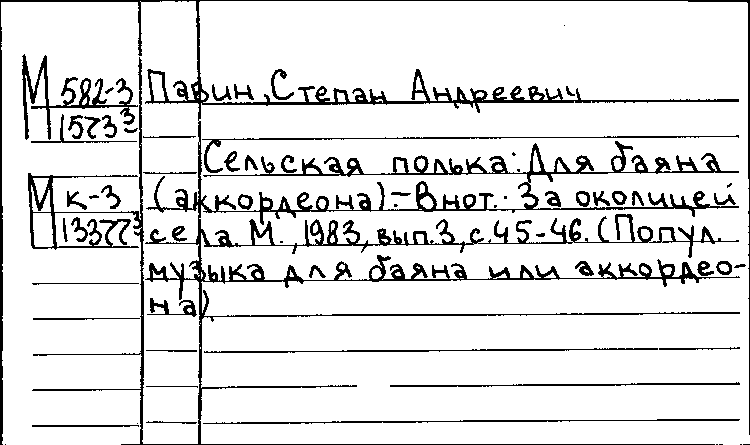 М 582-3 Павин, Степан Андреевич
15733
Сельская полька: Для баяна
М К-3 (аккордеона).- В нот.: За околицей
133773 села. М., 1983, вып. 3, с. 45-46. (Попул.
музыка для баяна или аккордео-
на)